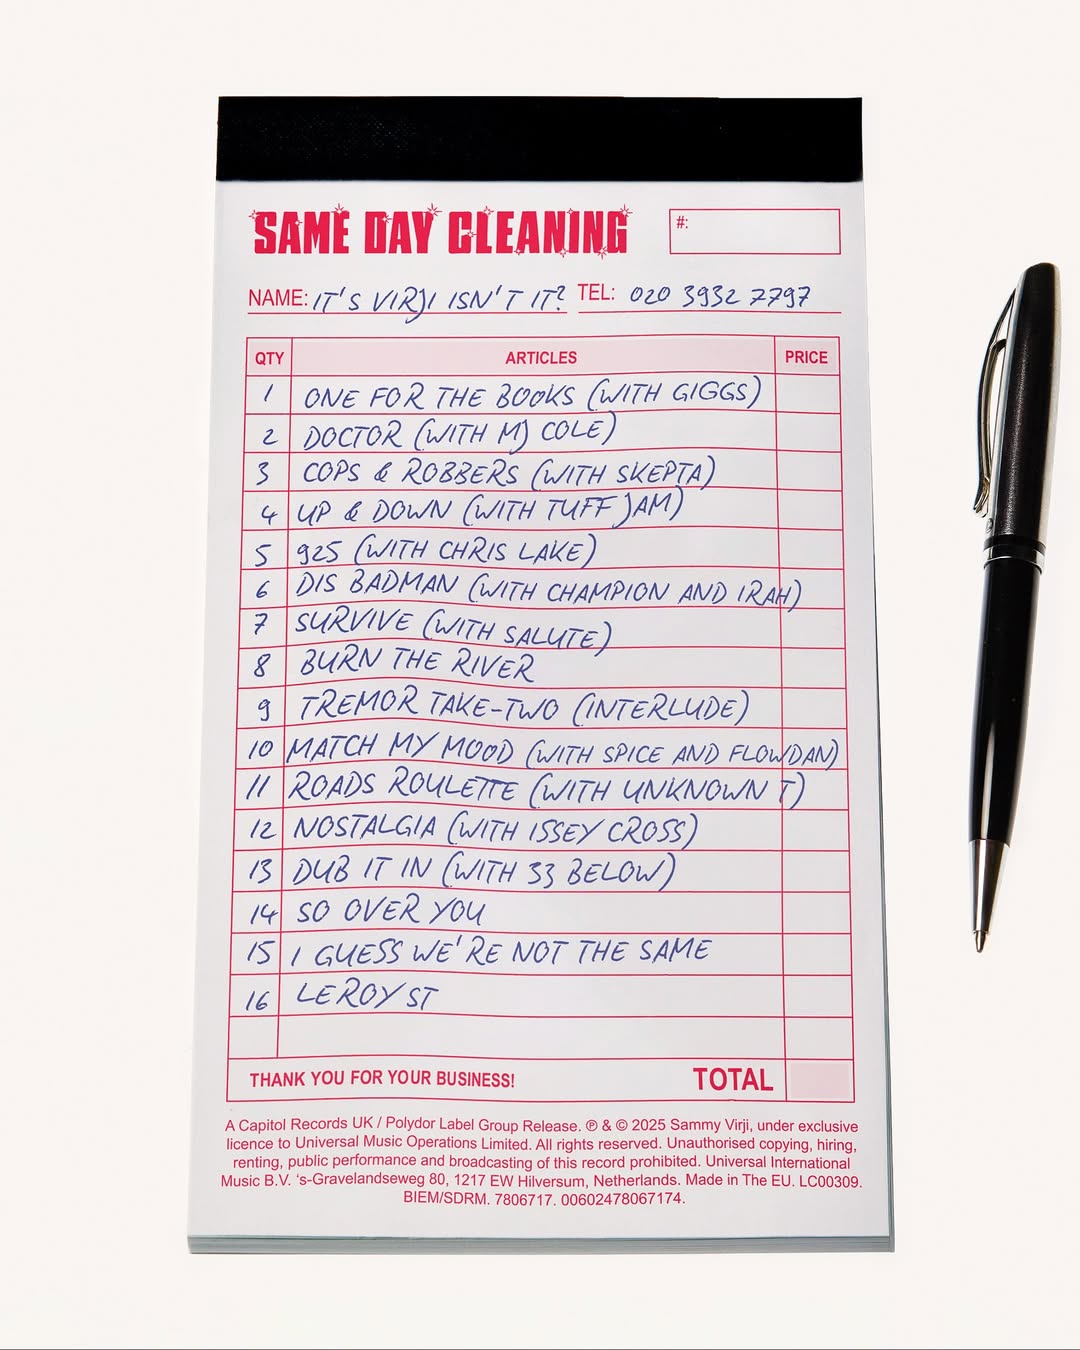 SAME DAY CLEANING
#:
NAME: IT'S VIRJI ISN'T IT? TEL: 020 3932 7797
QTY ARTICLES PRICE
1 ONE FOR THE BOOKS (WITH GIGGS)
2 DOCTOR (WITH MJ COLE)
3 COPS & ROBBERS (WITH SKEPTA)
4 UP & DOWN (WITH TUFF JAM)
5 925 (WITH CHRIS LAKE)
6 DIS BADMAN (WITH CHAMPION AND IRAH)
7 SURVIVE (WITH SALUTE)
8 BURN THE RIVER
9 TREMOR TAKE-TWO (INTERLUDE)
10 MATCH MY MOOD (WITH SPICE AND FLOWDAN)
11 ROADS ROULETTE (WITH UNKNOWN T)
12 NOSTALGIA (WITH ISSEY CROSS)
13 DUB IT IN (WITH 33 BELOW)
14 SO OVER YOU
15 I GUESS WE'RE NOT THE SAME
16 LEROY ST
THANK YOU FOR YOUR BUSINESS! TOTAL
A Capitol Records UK / Polydor Label Group Release. ℗ & © 2025 Sammy Virji, under exclusive
licence to Universal Music Operations Limited. All rights reserved. Unauthorised copying, hiring,
renting, public performance and broadcasting of this record prohibited. Universal International
Music B.V. 's-Gravelandseweg 80, 1217 EW Hilversum, Netherlands. Made in The EU. LC00309.
BIEM/SDRM. 7806717. 00602478067174.